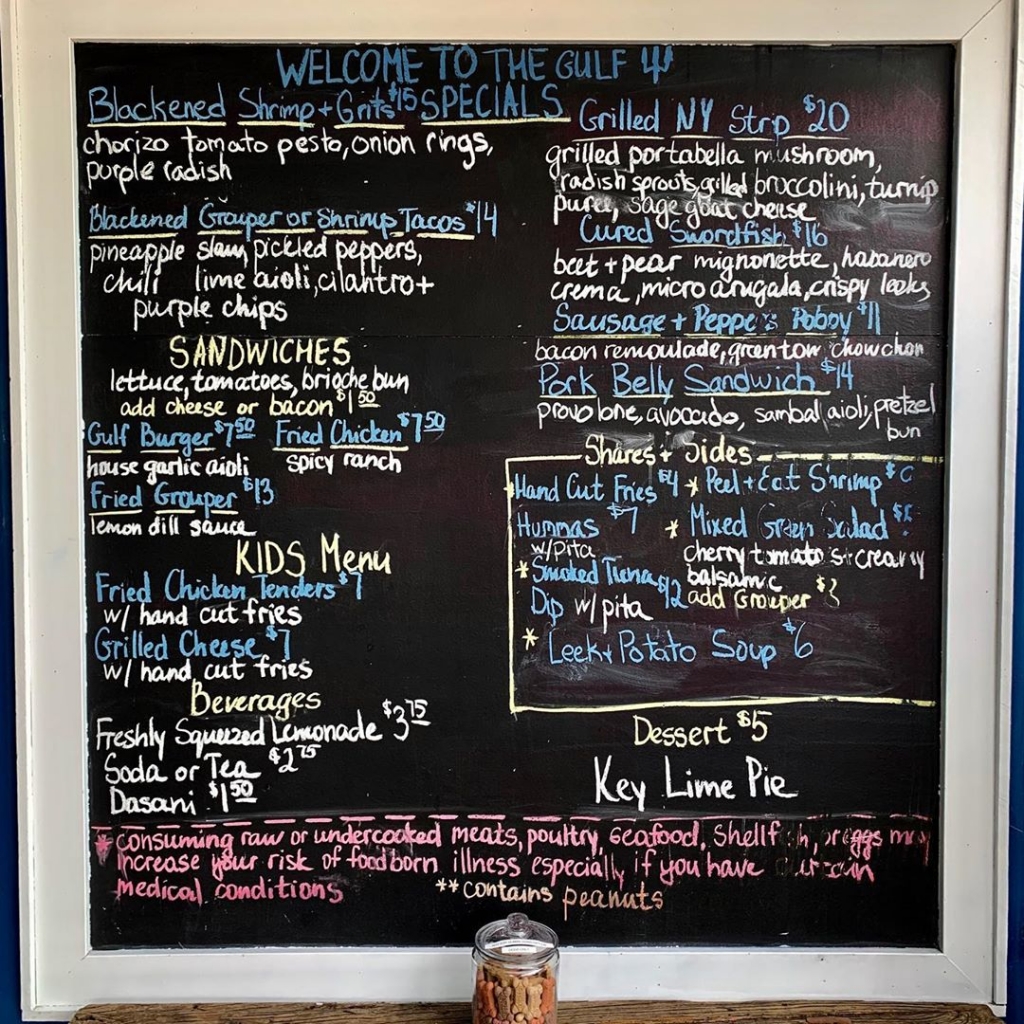 WELCOME TO THE GULF
SPECIALS
Blackened Shrimp + Grits $15
chorizo tomato pesto, onion rings,
purple radish
Blackened Grouper or Shrimp Tacos $14
pineapple slaw, pickled peppers,
chili lime aioli, cilantro +
purple chips
SANDWICHES
lettuce, tomatoes, brioche bun
add cheese or bacon $1.50
Gulf Burger $7.50 Fried Chicken $7.50
house garlic aioli spicy ranch
Fried Grouper $13
lemon dill sauce
KIDS Menu
Fried Chicken Tenders $7
w/ hand cut fries
Grilled Cheese $7
w/ hand cut fries
Beverages
Freshly Squeezed Lemonade $3.75
Soda or Tea $2.75
Dasani $1.50
Grilled NY Strip $20
grilled portabella mushroom,
radish sprouts, grilled broccolini, turnip
puree, sage goat cheese
Cured Swordfish $16
beet + pear mignonette, habanero
crema, micro arugala, crispy leeks
Sausage + Peppers Poboy $11
bacon remoulade, green tom chow chow
Pork Belly Sandwich $14
provolone, avocado, sambal aioli, pretzel
bun
Shares + Sides
*Hand Cut Fries $4
Hummas $7
w/ Pita
*Smoked Tuna $12
Dip w/ pita
* Peel + Eat Shrimp
* Mixed Green Salad
cherry tomato's + creamy
balsamic
add Grouper $3
* Leek + Potato Soup $6
Dessert $5
Key Lime Pie
* consuming raw or undercooked meats, poultry, seafood, shellfish, or eggs may
increase your risk of foodborn illness especially if you have certain
medical conditions **contains peanuts